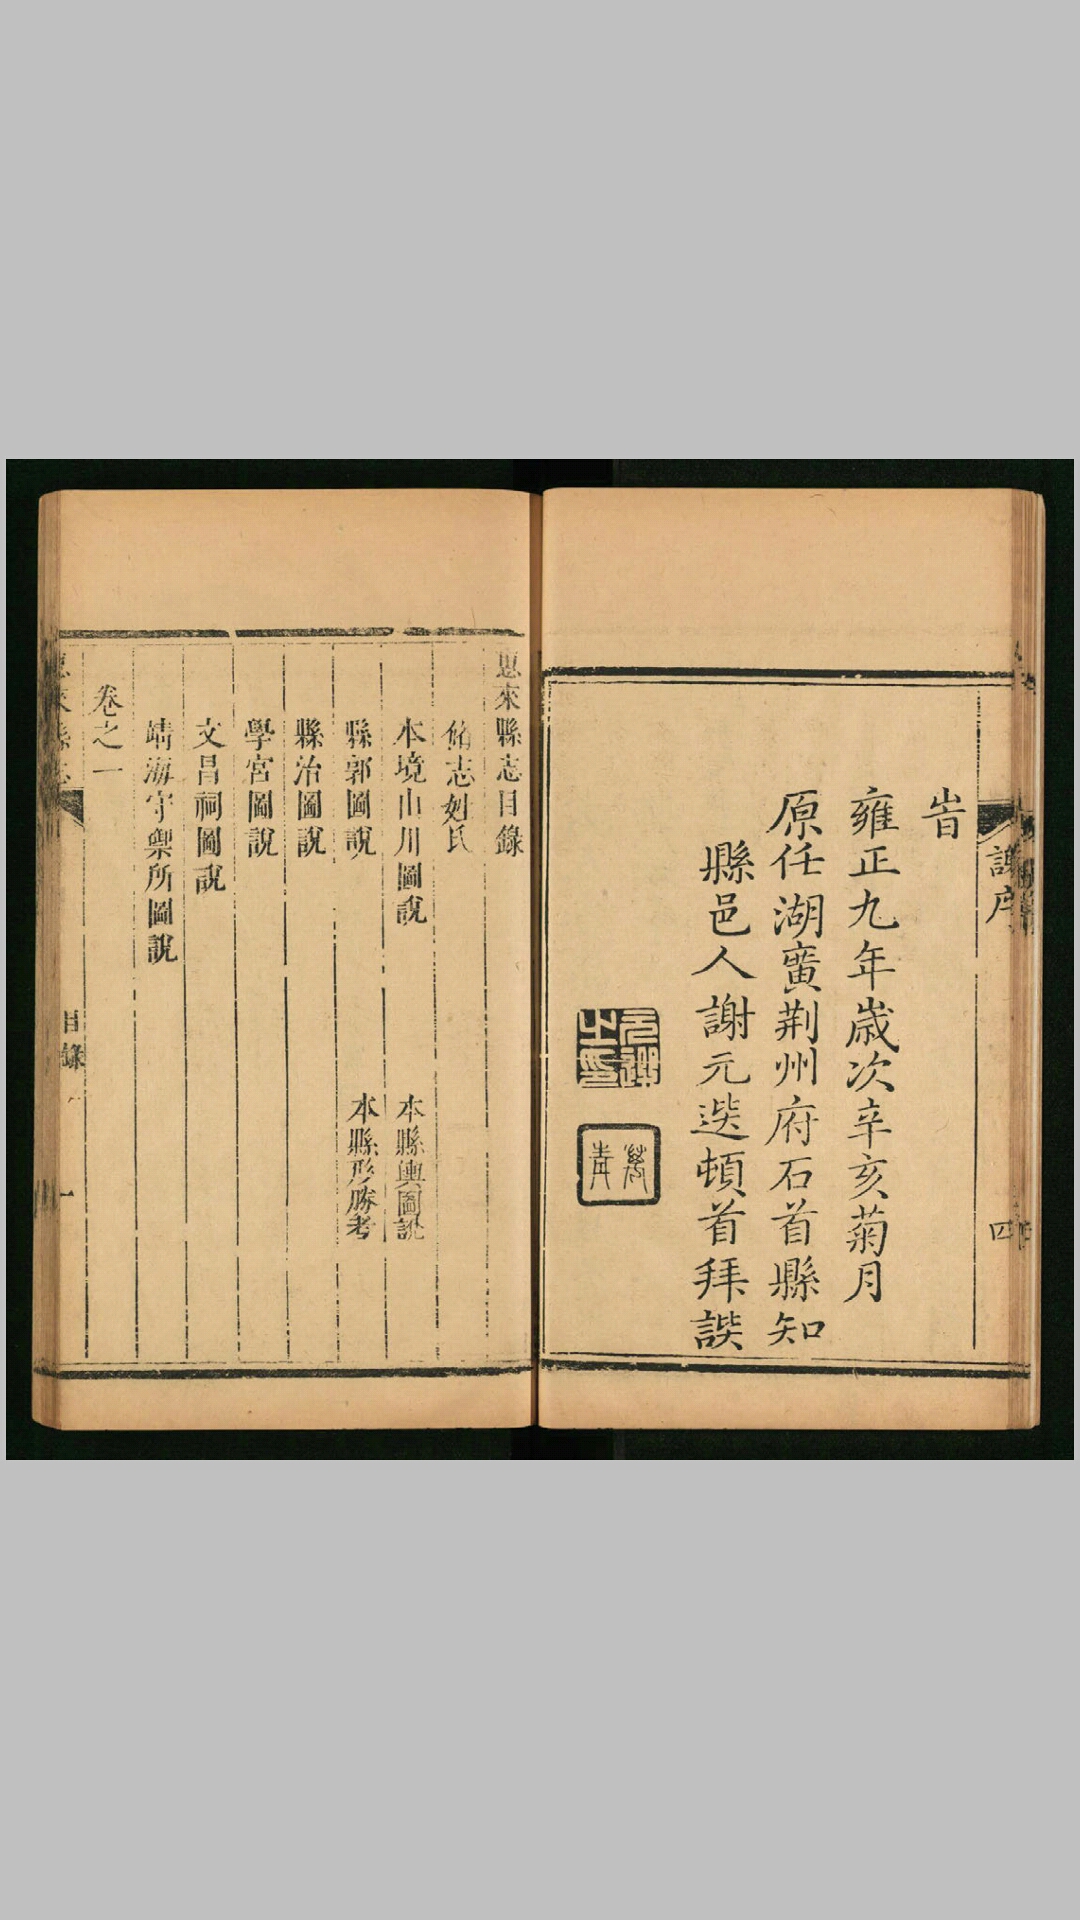 旹
雍正九年歲次辛亥菊月
原任湖廣荆州府石首縣知
縣邑人謝元選頓首拜譔
謝序
四
惠來縣志目錄
脩志姓氏
本境山川圖說
本縣輿圖說
縣郭圖說
本縣形勝考
縣治圖說
學宮圖說
文昌祠圖說
靖海守禦所圖說
卷之一
惠來縣志
目錄
一